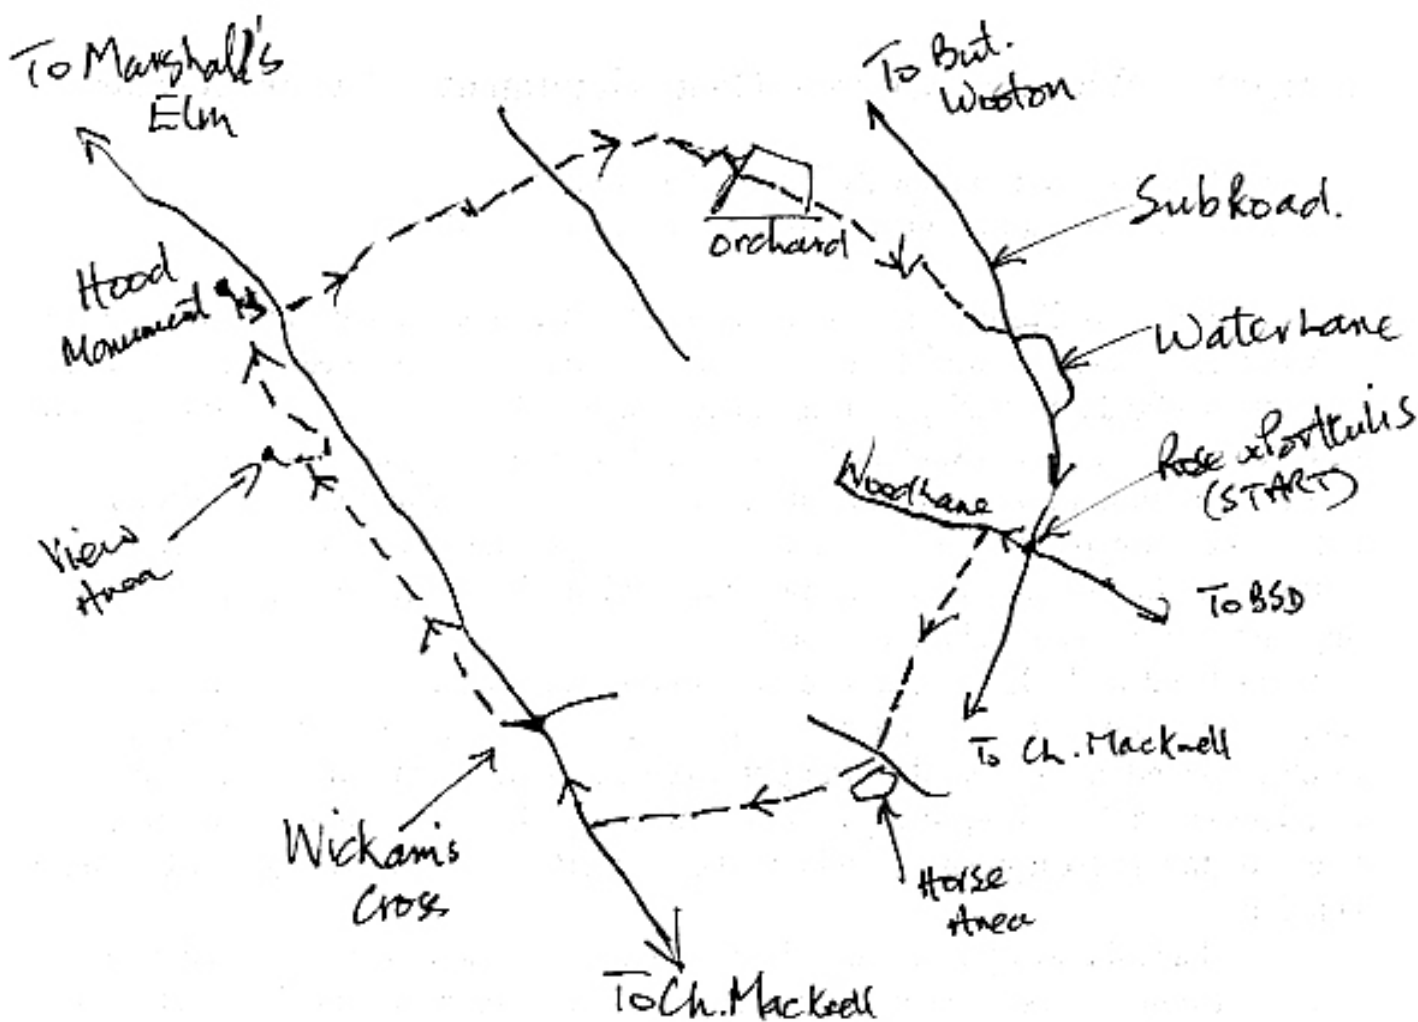 To Marshall's
Elm
To But.
Wooton
Sub Road.
orchard
Hood
Monument
Water Lane
Rose & Portkulis
(START)
Wood Lane
View
Area
To BSD
To Ch. Macknell
Wickam's
Cross
Horse
Area
To Ch. Macknell